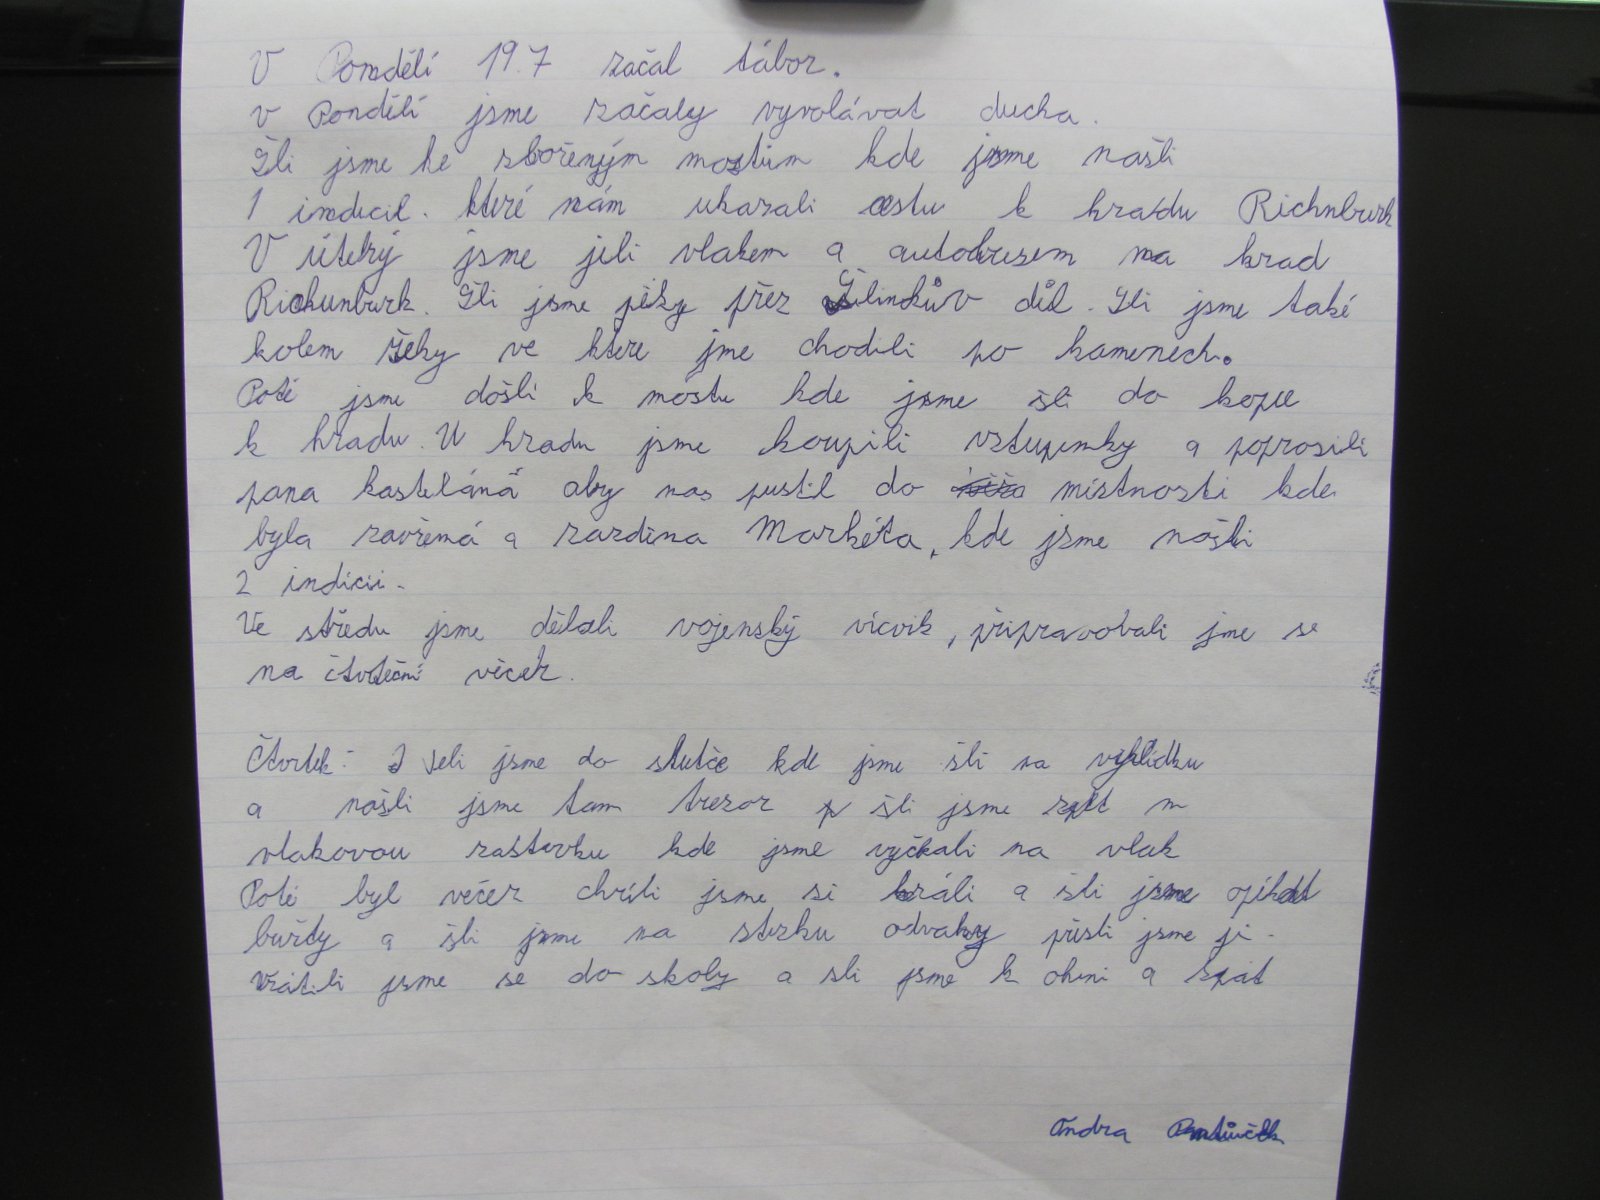 V Pondělí 19.7 začal tábor.
v Pondělí jsme začaly vyvolávat ducha.
Šli jsme ke zbořeným mostům kde jsme našli
1 indicií. které nám ukazali cestu k hradu Richnburk
V úterý jsme jeli vlakem a autobusem na hrad
Richunburk. Šli jsme pěšky přez Šilinkův důl. Šli jsme také
kolem řeky ve ktere jme chodili po kamenech.
Poté jsme došli k mostu kde jsme šli do kopce
k hradu. U hradu jsme koupili vztupenky a poprosili
pana kastelána aby nas pustil do místnosti kde
byla zavřená a zazděna Markéta, kde jsme našli
2 indicii.
Ve středu jsme dělali vojenský vícvik, připravovali jme se
na čtvrteční věcer.
Čtvrtek: Jeli jsme do slutče kde jsme šli na vyhlídku
a našli jsme tam trezor šli jsme zpět
vlakovou zastavku kde jsme vyčkali na vlak
Poté byl večer chvíli jsme si hráli a šli jsme opíkat
buřty a šli jsme na stezku odvahy přišli jsme ji.
Vrátili jsme se do skoly a sli jsme k ohni a spát
Ondra